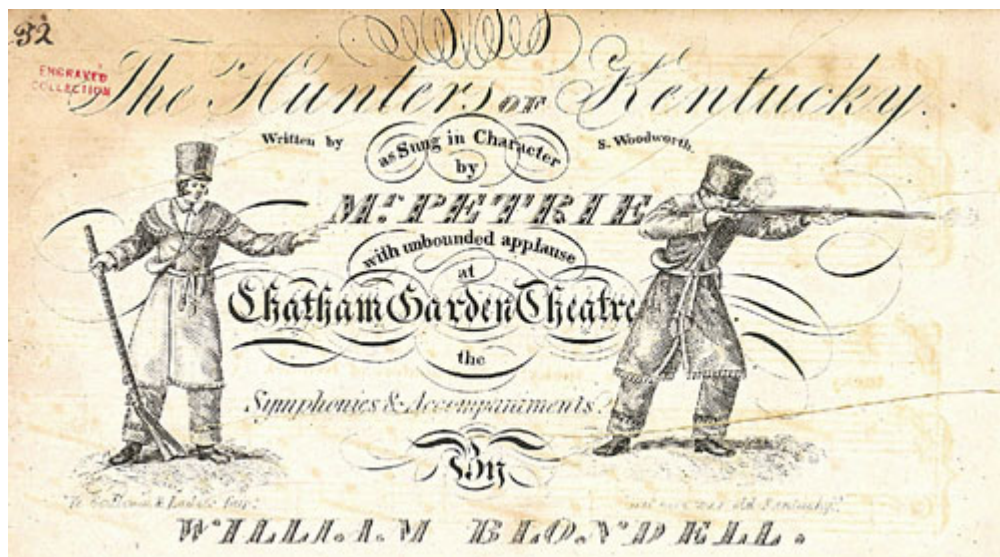 32
ENGRAVED
COLLECTION
The Hunters OF Kentucky.
Written by
S. Woodworth.
as Sung in Character
by
Mr. PETRIE
with unbounded applause
at
Chatham Garden Theatre
the
Symphonies & Accompaniments
By
"Ye Gentlemen & Ladies fair."
old Kentucky."
WILLIAM BLONDELL.